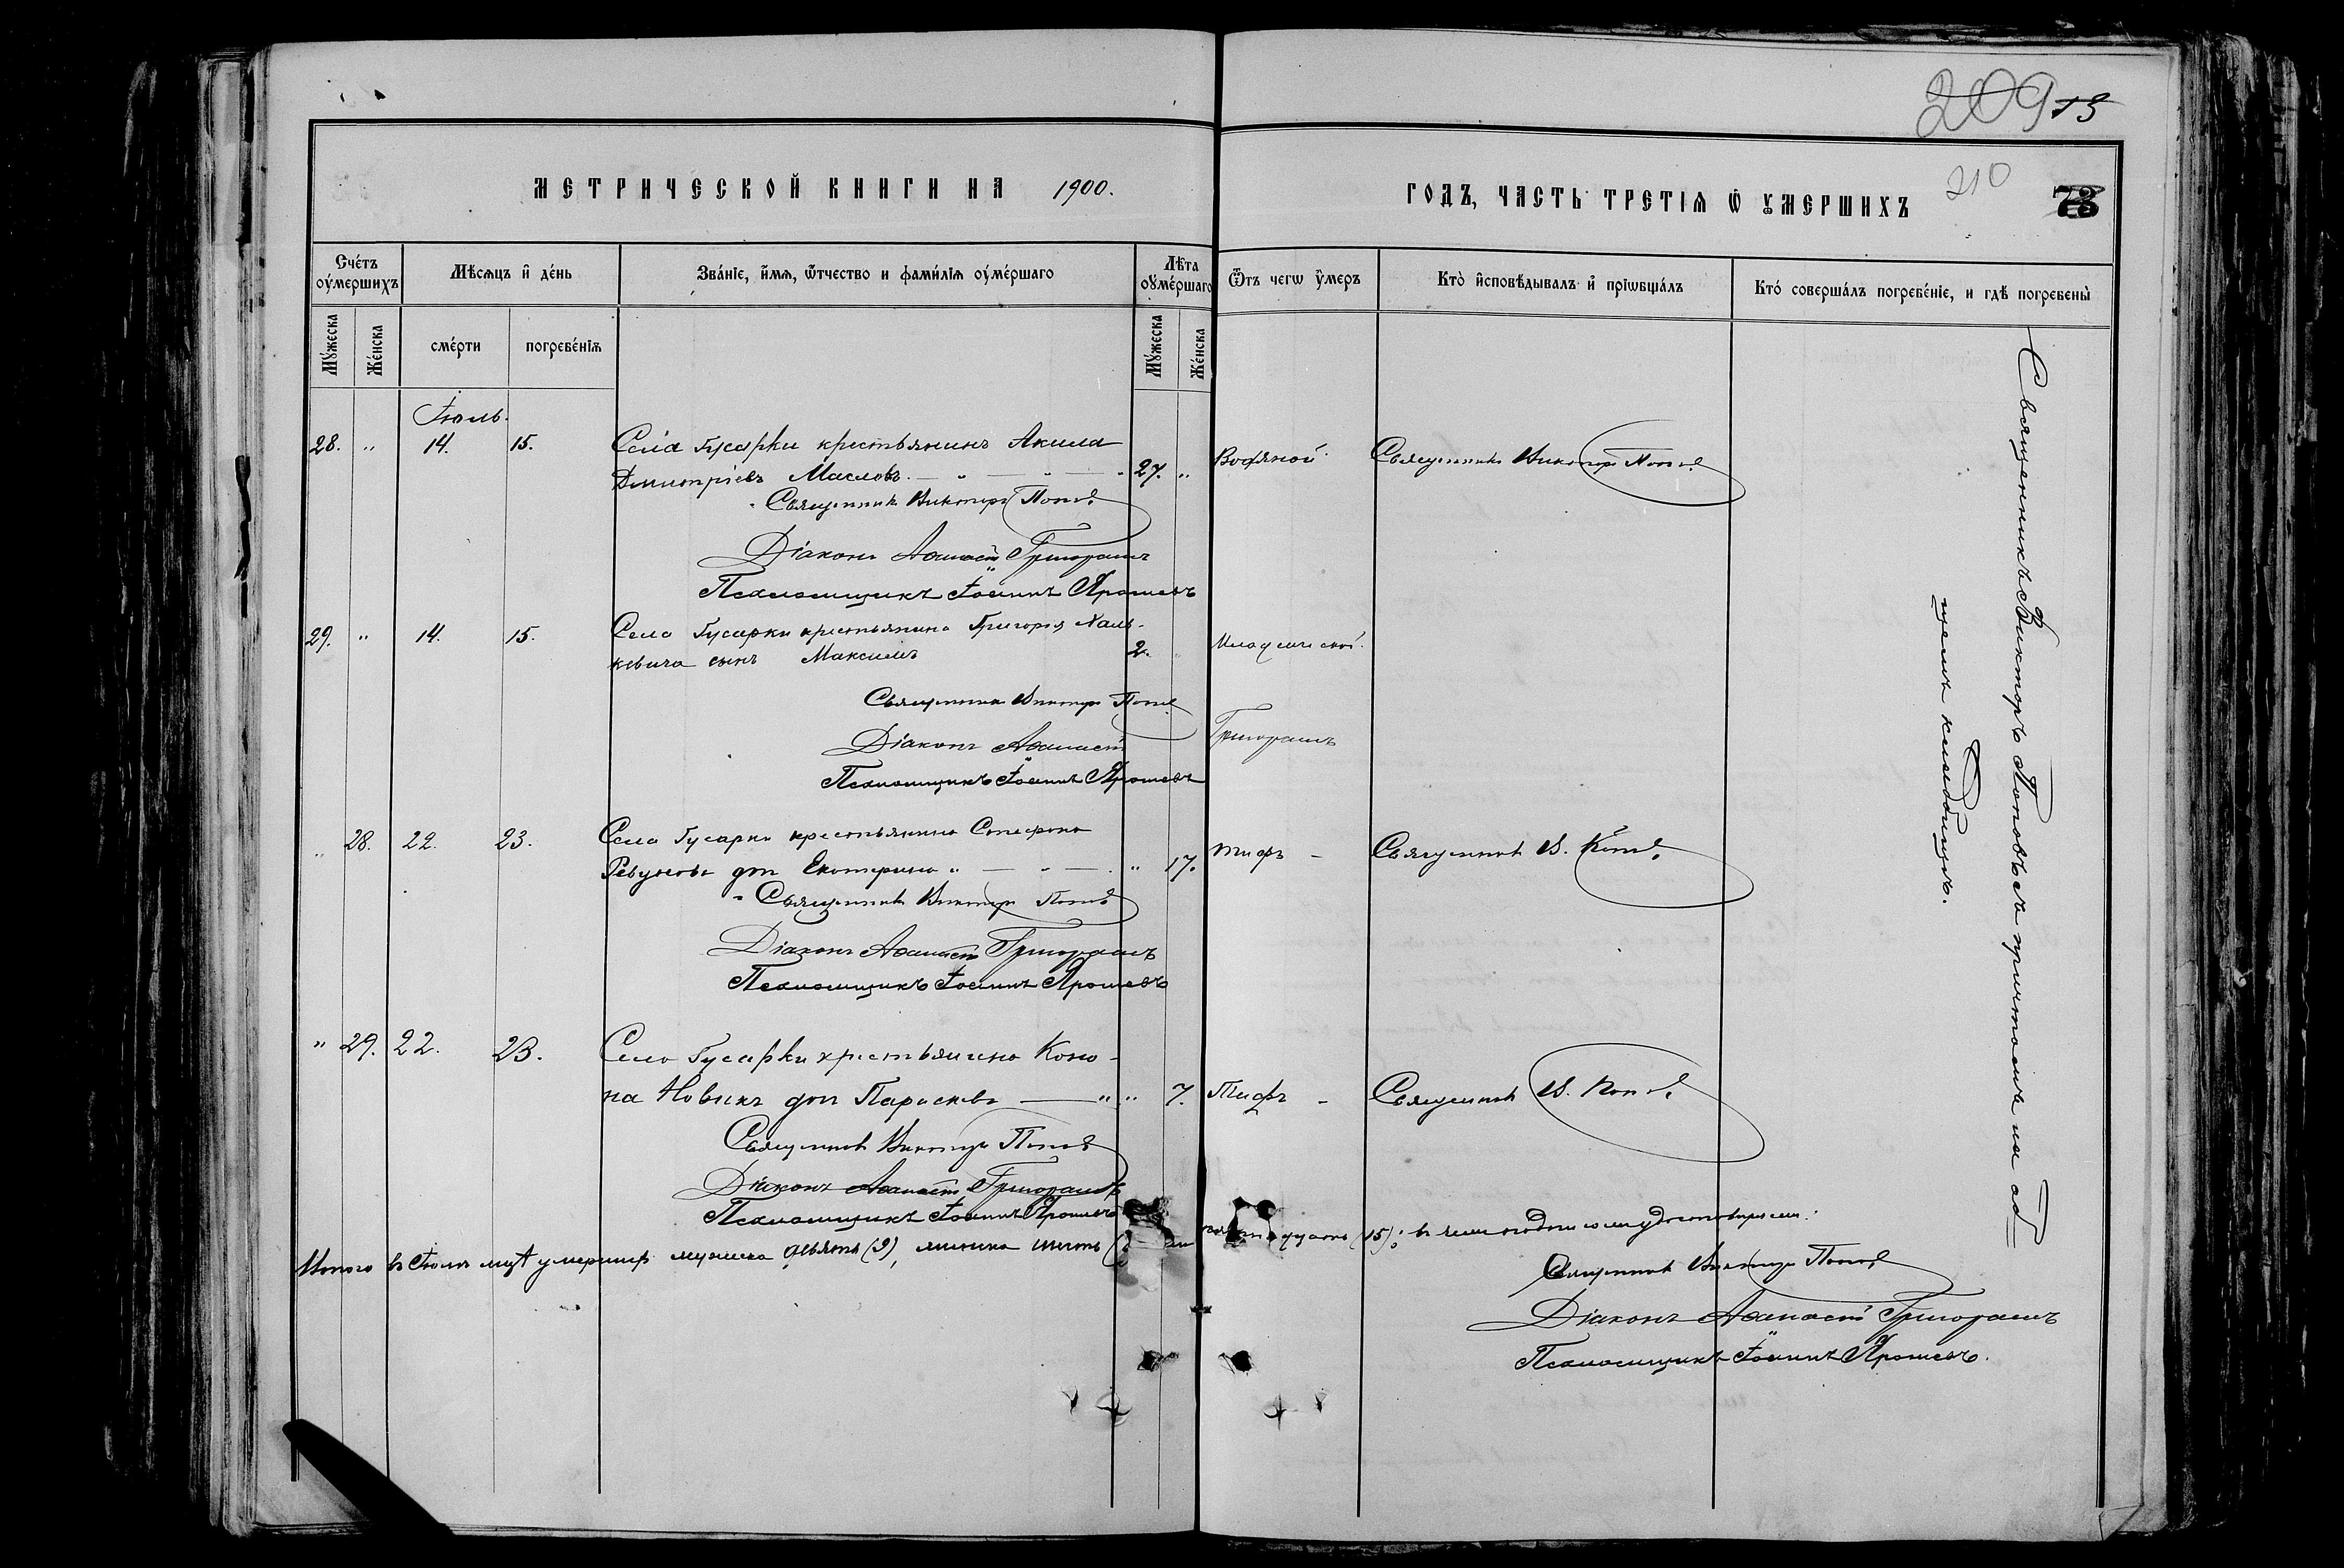 209 13
210
73
МЕТРИЧЕСКОЙ КНИГИ НА 1900.
ГОДЪ, ЧАСТЬ ТРЕТІЯ Ѿ ОУМЕРШИХЪ
Счётъ оумершихъ
Мѣсяцъ и день
Званіе, имя, ѿчество и фамилія оумершаго
Лѣта оумершаго
Ѿтъ чегѡ умеръ
Кто исповѣдывалъ и пріѡбщалъ
Кто совершалъ погребеніе, и гдѣ погребены
Мужеска
Женска
смерти
погребенія
Мужеска
Женска
Іюль.
28. " 14. 15. Села Гусарки крестьянинъ Акила
Дмитріевъ Масловъ. 27. " Водяной. Священникъ Викторъ Поповъ
Священникъ Викторъ Поповъ
Діаконъ Аѳанасій Григорашъ
Псаломщикъ Іоаннъ Ярошевъ
29. " 14. 15. Села Гусарки крестьянина Григорія Халь-
кевича сынъ Максимъ 2. Младенческой.
Священникъ Викторъ Поповъ
Діаконъ Аѳанасій Григорашъ
Псаломщикъ Іоаннъ Ярошевъ
" 28. 22. 23. Села Гусарки крестьянина Стефана
Ревунова дочь Екатерина " 17. тифъ Священникъ В. Поповъ
Священникъ Викторъ Поповъ
Діаконъ Аѳанасій Григорашъ
Псаломщикъ Іоаннъ Ярошевъ
" 29. 22. 23. Села Гусарки крестьянина Коно-
на Новикъ дочь Параскева " 7. Тифъ Священникъ В. Поповъ
Священникъ Викторъ Поповъ
Діаконъ Аѳанасій Григорашъ
Псаломщикъ Іоаннъ Ярошевъ
Итого въ Іюлѣ мцѣ умершихъ мужеска девять (9), женска шесть (15): въ чемъ подписомъ удостовѣряемъ:
Священникъ Викторъ Поповъ
Діаконъ Аѳанасій Григорашъ
Псаломщикъ Іоаннъ Ярошевъ.
Священникъ Викторъ Поповъ съ причтомъ на об-
щемъ кладбищѣ.